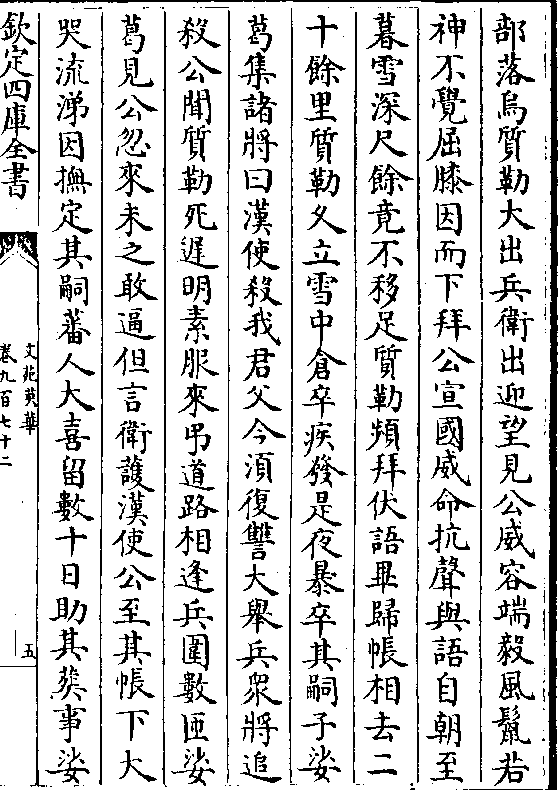 部落烏質勒大出兵衛出迎望見公威容端毅風鬣若
神不覺屈膝因而下拜公宣國威命抗聲與語自朝至
暮雪深尺餘竟不移足質勒頻拜伏語畢歸帳相去二
十餘里質勒久立雪中倉卒疾發是夜暴卒其嗣子娑
葛集諸將曰漢使殺我君父今須復讐大舉兵衆將追
殺公聞質勒死遲明素服來弔道路相逢兵圍數匝娑
葛見公忽來未之敢逼但言衛護漢使公至其帳下大
哭流涕因撫定其嗣蕃人大喜留數十日助其葬事娑
欽定四庫全書
文苑英華
卷九百七十二
五